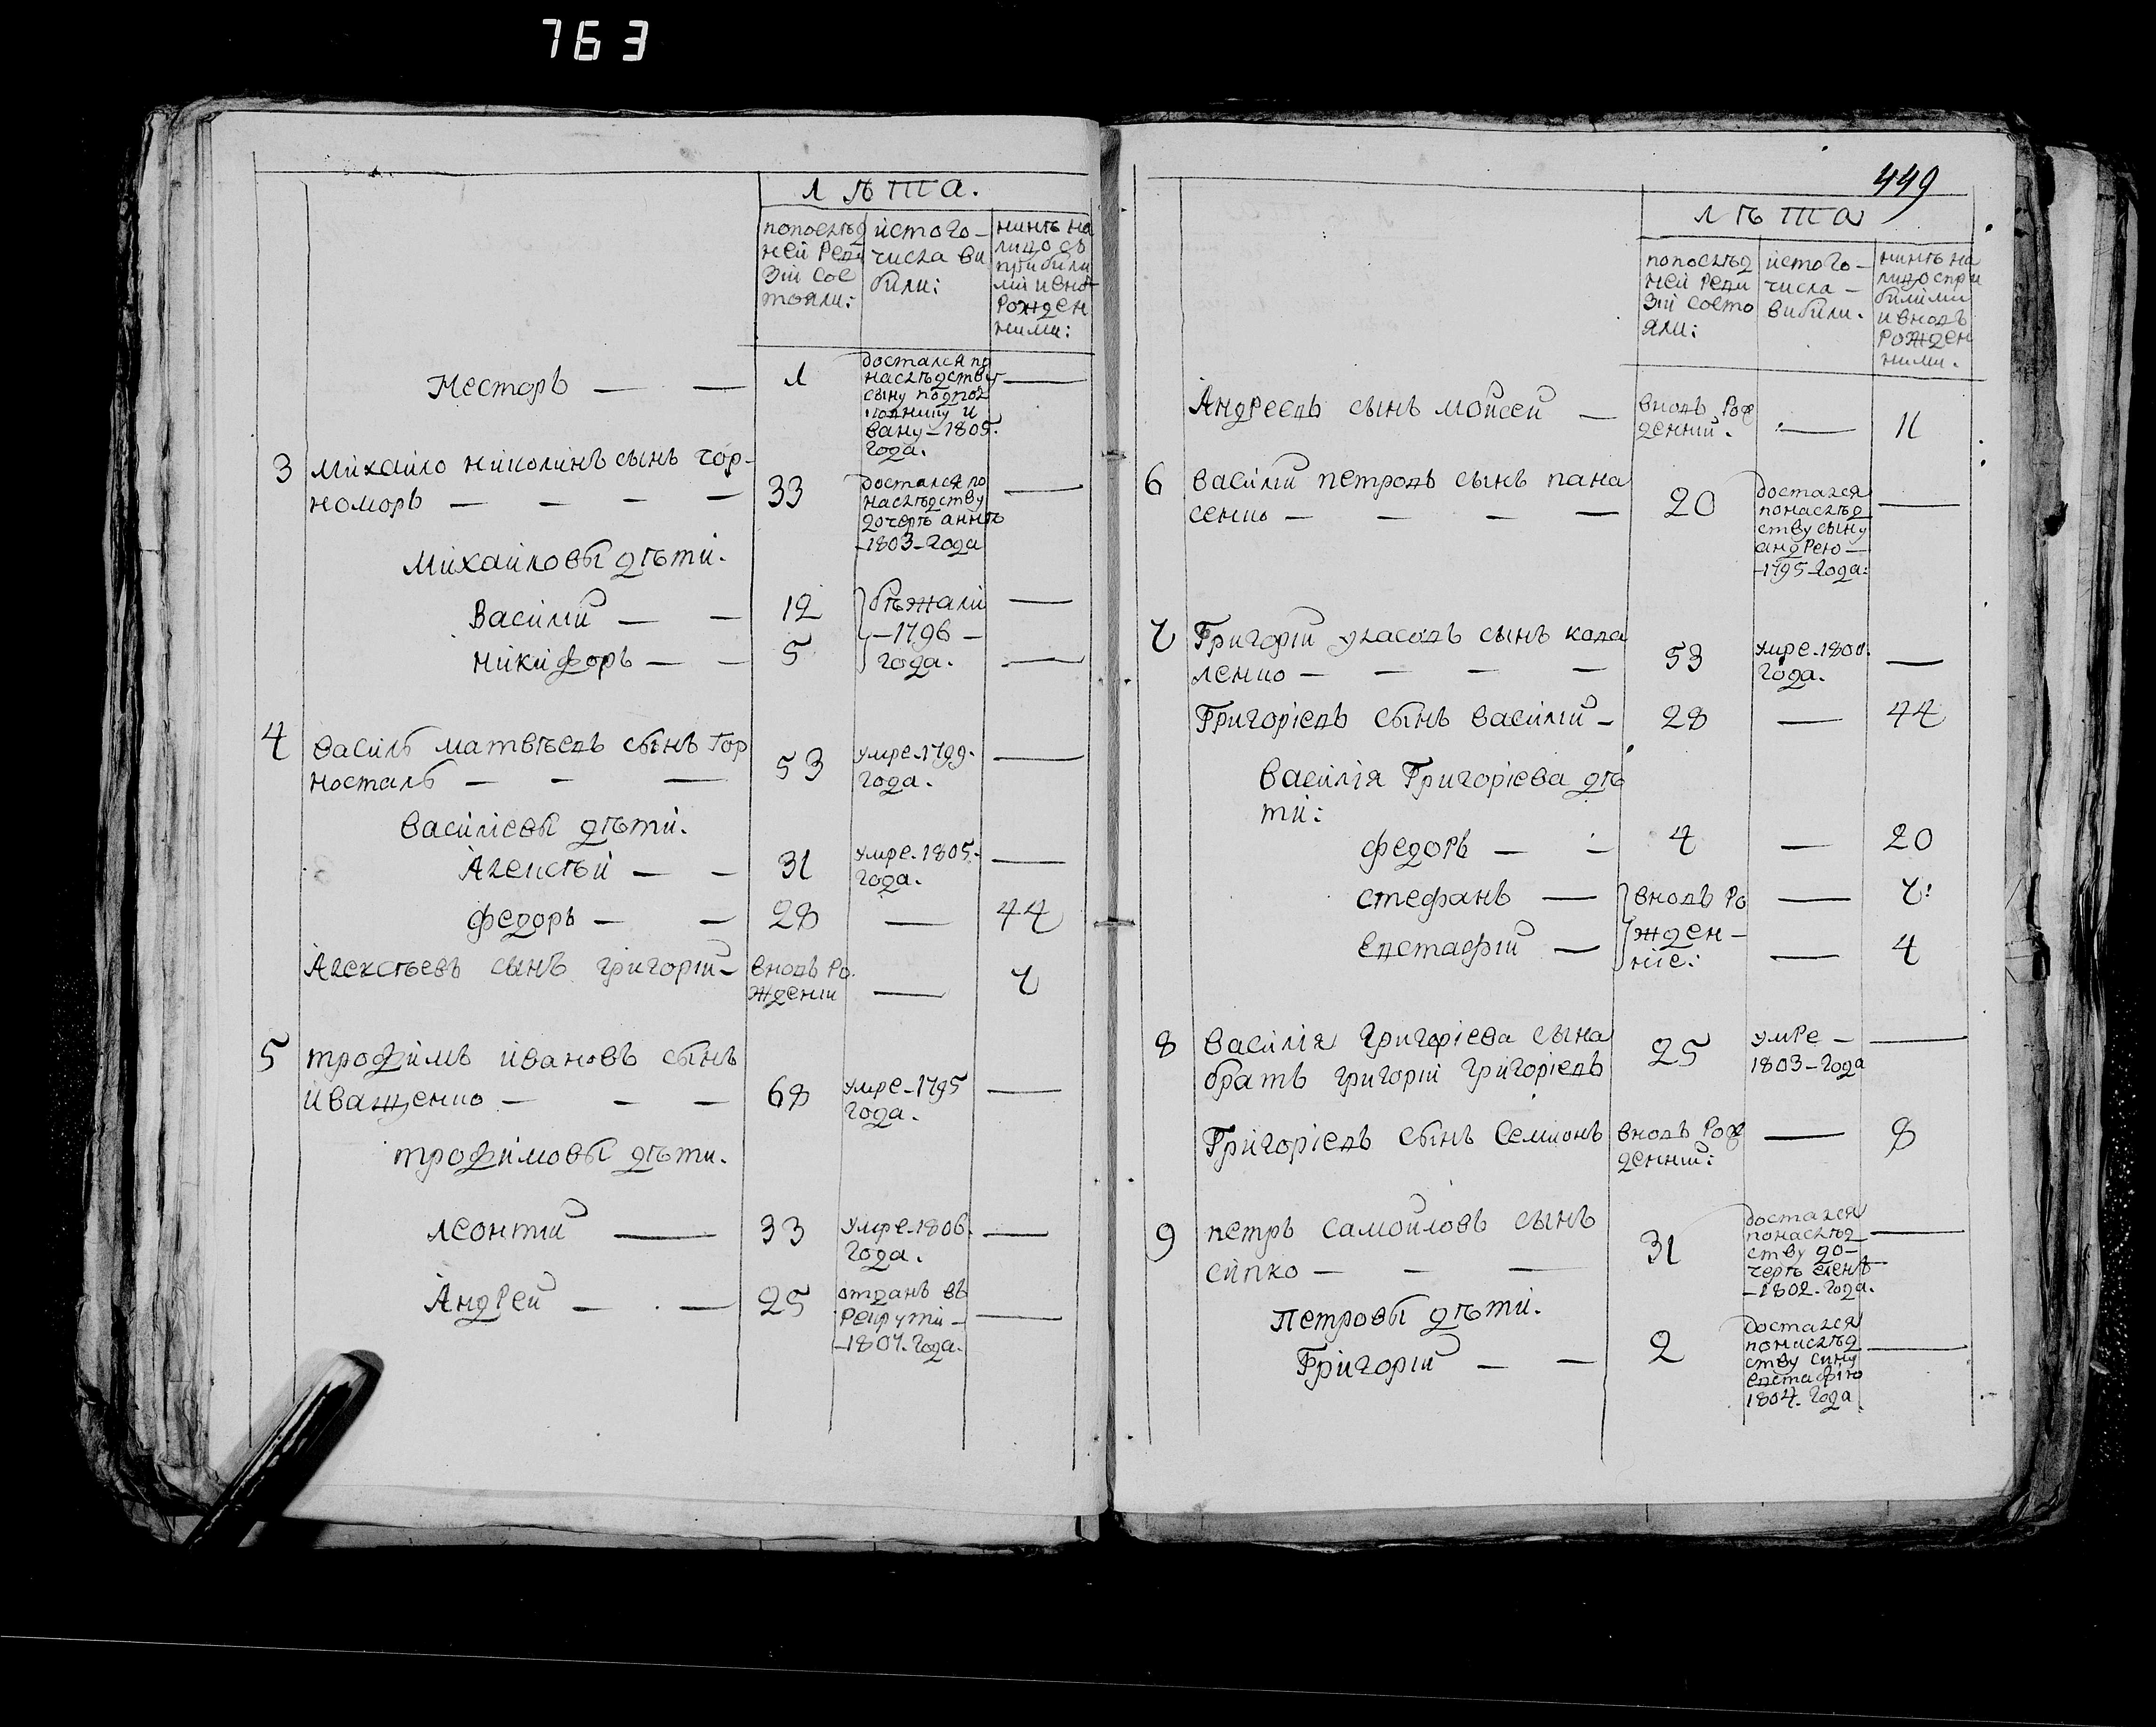 763
лѣта.
попослѣд
ней реви
зіи сос
тояли:
истого-
числа ви
били:
нинѣ на
лицо съ
прибили
ми ивно-
рожден
ними:
Несторъ — — 1 —
достался по
наслѣдству
сыну подпол
ковнику и
вану-1805.
года.
3 Михайло николинъ сынъ чор-
номоръ — — — — 33 —
достался по
наслѣдству
дочерѣ аннѣ
-1803-года
Михайловы дѣти.
Василий — — 12 бѣжали —
никифоръ — — 5 -1796- —
года.
4 василь матвѣевъ сынъ Гор
носталь — — — 53 умре-1799. —
года.
василіевы дѣти.
Алексѣй — — 31 умре-1805. —
года.
федоръ — — 28 — 44
Алексѣевъ сынъ григорій- вновъ ро
ждении — 7
5 трофимъ ивановъ сынъ
иващенко — — — 68 умре-1795 —
года.
трофимовы дѣти.
леонтий — 33 умре-1806. —
года.
Андрей — — 25 отданъ въ
рекрути- —
-1807.года.
449
лѣта
попослѣд
ней реви
зіи состо
яли:
истого-
числа-
вибили.
нинѣ на
лицо спри
билими
ивновъ
рожден
ними.
Андреевъ сынъ мойсей — вновъ рож
денний. — 11
6 василий петровъ сынъ пана
сенко — — — — 20 —
достался
понаслѣд
ству сыну
андрею—
-1795-года:
7 Григорій сынъ кова
ленко — — — — 53 умре-1800. —
года.
Григоріевъ сынъ василий- 28 — 44
василія Григоріева дѣ
ти:
федоръ — — 4 — 20
стефанъ — вновъ ро — 7:
жден-
евстафій — ніе: — 4
8 василія григоріева сына
братъ григорій григоріевъ 25 умре- —
1803-года
Григоріевъ сынъ семионъ вновъ рож
денний: — 8
9 петръ самойловъ сынъ
сипко — — — 31 —
достался
понаслѣд
ству до-
черѣ еленѣ
-1802.года.
Петровы дѣти.
Григорій — — 2 —
достался
понаслѣд
ству сину
евстафію
1804.года